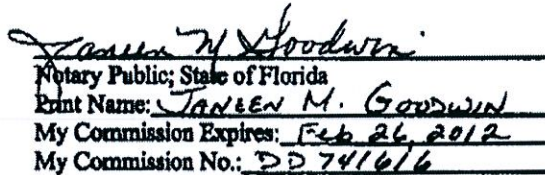 Janeen M Goodwin
Notary Public; State of Florida
Print Name: JANEEN M. GOODWIN
My Commission Expires: Feb 26, 2012
My Commission No.: DD 741616